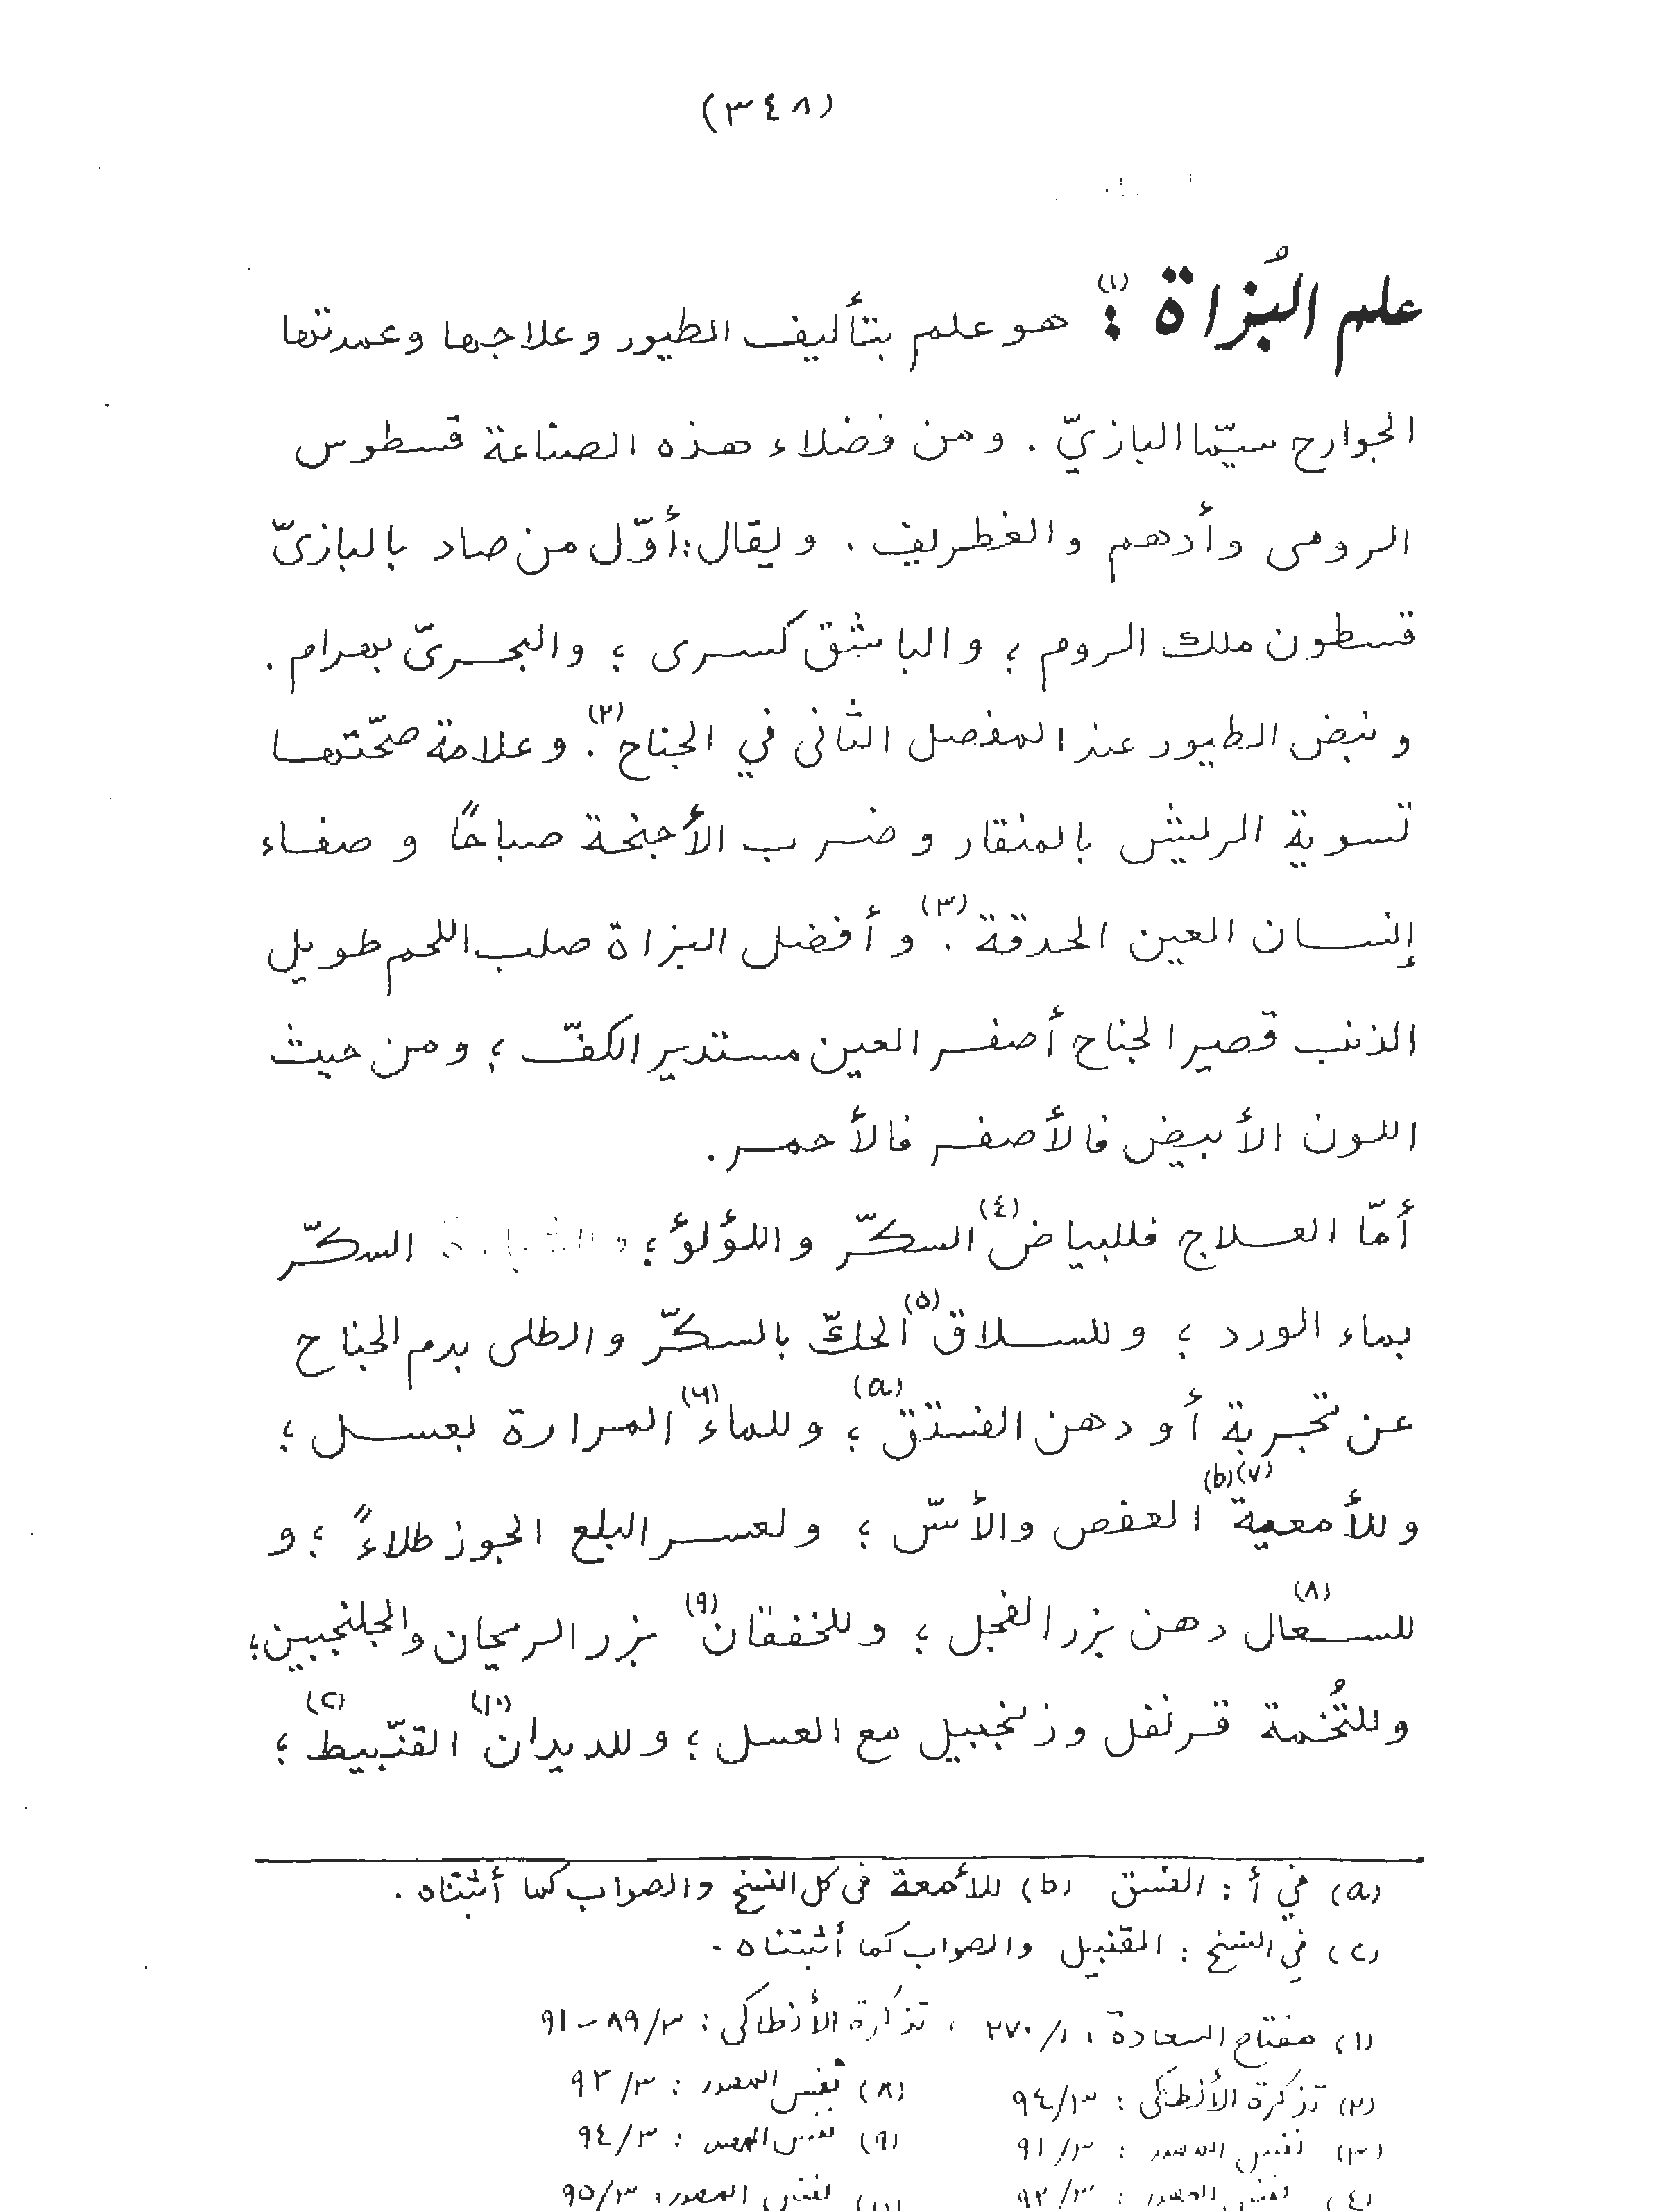 (٣٤٨)
علم البُزاة (١): هو علم بتأليف الطيور وعلاجها وعمدتها
الجوارح سيّما البازيّ . ومن فضلاء هذه الصناعة قسطوس
الرومى وأدهم والغطريف . ويقال: أوّل من صاد بالبازىّ
قسطون ملك الروم ؛ والباشق كسرى ؛ والبحرىّ بهرام .
ونبض الطيور عند المفصل الثانى في الجناح (٢). وعلامة صحّتها
تسوية الريش بالمنقار وضرب الأجنحة صباحًا وصفاء
إنسان العين الحدقة (٣). وأفضل البزاة صلب اللحم طويل
الذنب قصير الجناح أصفر العين مستدير الكفّ ؛ ومن حيث
اللون الأبيض فالأصفر فالأحمر .
أمّا العلاج فللبياض (٤) السكّر واللؤلؤ ؛ السكّر
بماء الورد ؛ وللسلاق (٥) الحكّ بالسكّر والطلى بدم الجناح
عن تجربة أو دهن الفستق (a) ؛ وللماء (٦) المرارة بعسل ؛
وللأمعية (٧)(b) العفص والأسّ ؛ ولعسر البلع الجوز طلاءً ؛ و
للسعال (٨) دهن بزر الفجل ؛ وللخفقان (٩) بزر الريحان والجلنجبين ؛
وللتُخمة قرنفل وزنجبيل مع العسل ؛ وللديدان (١٠) القنّبيط (c) ؛
(a) في أ : الفسق (b) للأمعة فى كل النسخ والصواب كما أثبتناه .
(c) في النسخ : القنبيل والصواب كما أثبتناه .
(١) مفتاح السعادة : ١/٢٧٠ ، تذكرة الأنطاكى : ٣/٨٩ – ٩١
(٢) تذكرة الأنطاكى : ٣/٩٤ (٨) نفس المصدر : ٣/٩٢
(٣) نفس المصدر : ٣/٩١ (٩) نفس المصدر : ٣/٩٤
(٤) نفس المصدر : ٣/٩٢ نفس المصدر : ٣/٩٥